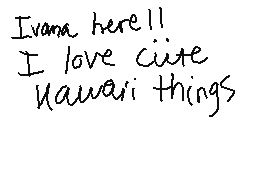 Ivana here!!
I love cüte
Kawaii things